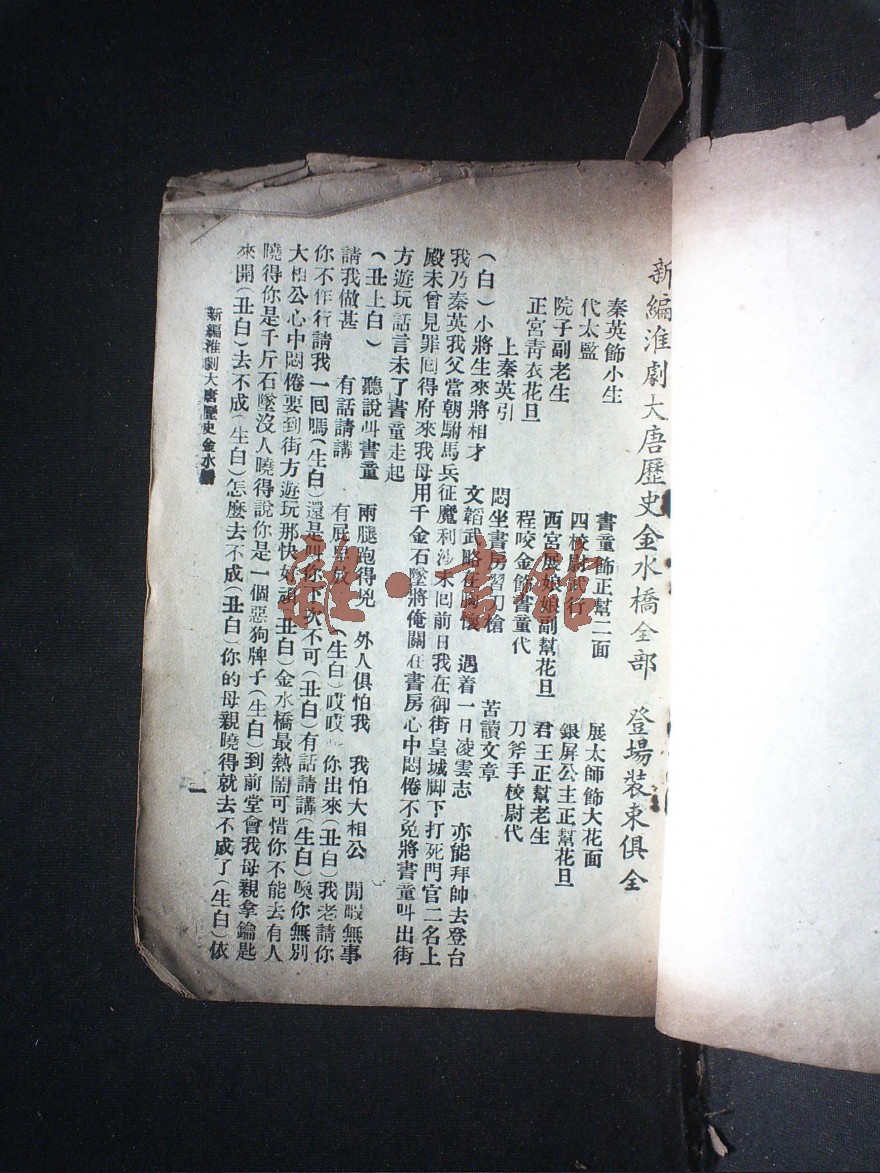 新編淮劇大唐歷史金水橋全部　登場裝束俱全
秦英飾小生　書童飾正幫二面　展太師飾大花面
代太監　四校尉武行　銀屏公主正幫花旦
院子副老生　西宮展娘娘副幫花旦　君王正幫老生
正宮靑衣花旦　程咬金飾書童代　刀斧手校尉代
上秦英引　悶坐書房習刀槍　苦讀文章
（白）小將生來將相才　文韜武略在胸懷　遇着一日凌雲志　亦能拜帥去登台
我乃秦英我父當朝駙馬兵征魔利沙未囘前日我在御街皇城脚下打死門官二名上
殿未曾見罪囘得府來我母用千金石墜將俺關在書房心中悶倦不免將書童叫出街
方遊玩話言未了書童走起
（丑上白）　聽說叫書童　兩腿跑得兇　外人俱怕我　我怕大相公　閒暇無事
請我做甚　有話請講　有屁放（生白）哎哎你出來（丑白）我老請你
你不作行請我一囘嗎（生白）還是叫你下次不可（丑白）有話請講（生白）喚你無別
大相公心中悶倦要到街方遊玩那快好（丑白）金水橋最熱鬧可惜你不能去有人
曉得你是千斤石墜沒人曉得說你是一個惡狗牌子（生白）到前堂會我母親拿鑰匙
來開（丑白）去不成（生白）怎麽去不成（丑白）你的母親曉得就去不成了（生白）依
新編淮劇大唐歷史金水橋
一
雜·書館